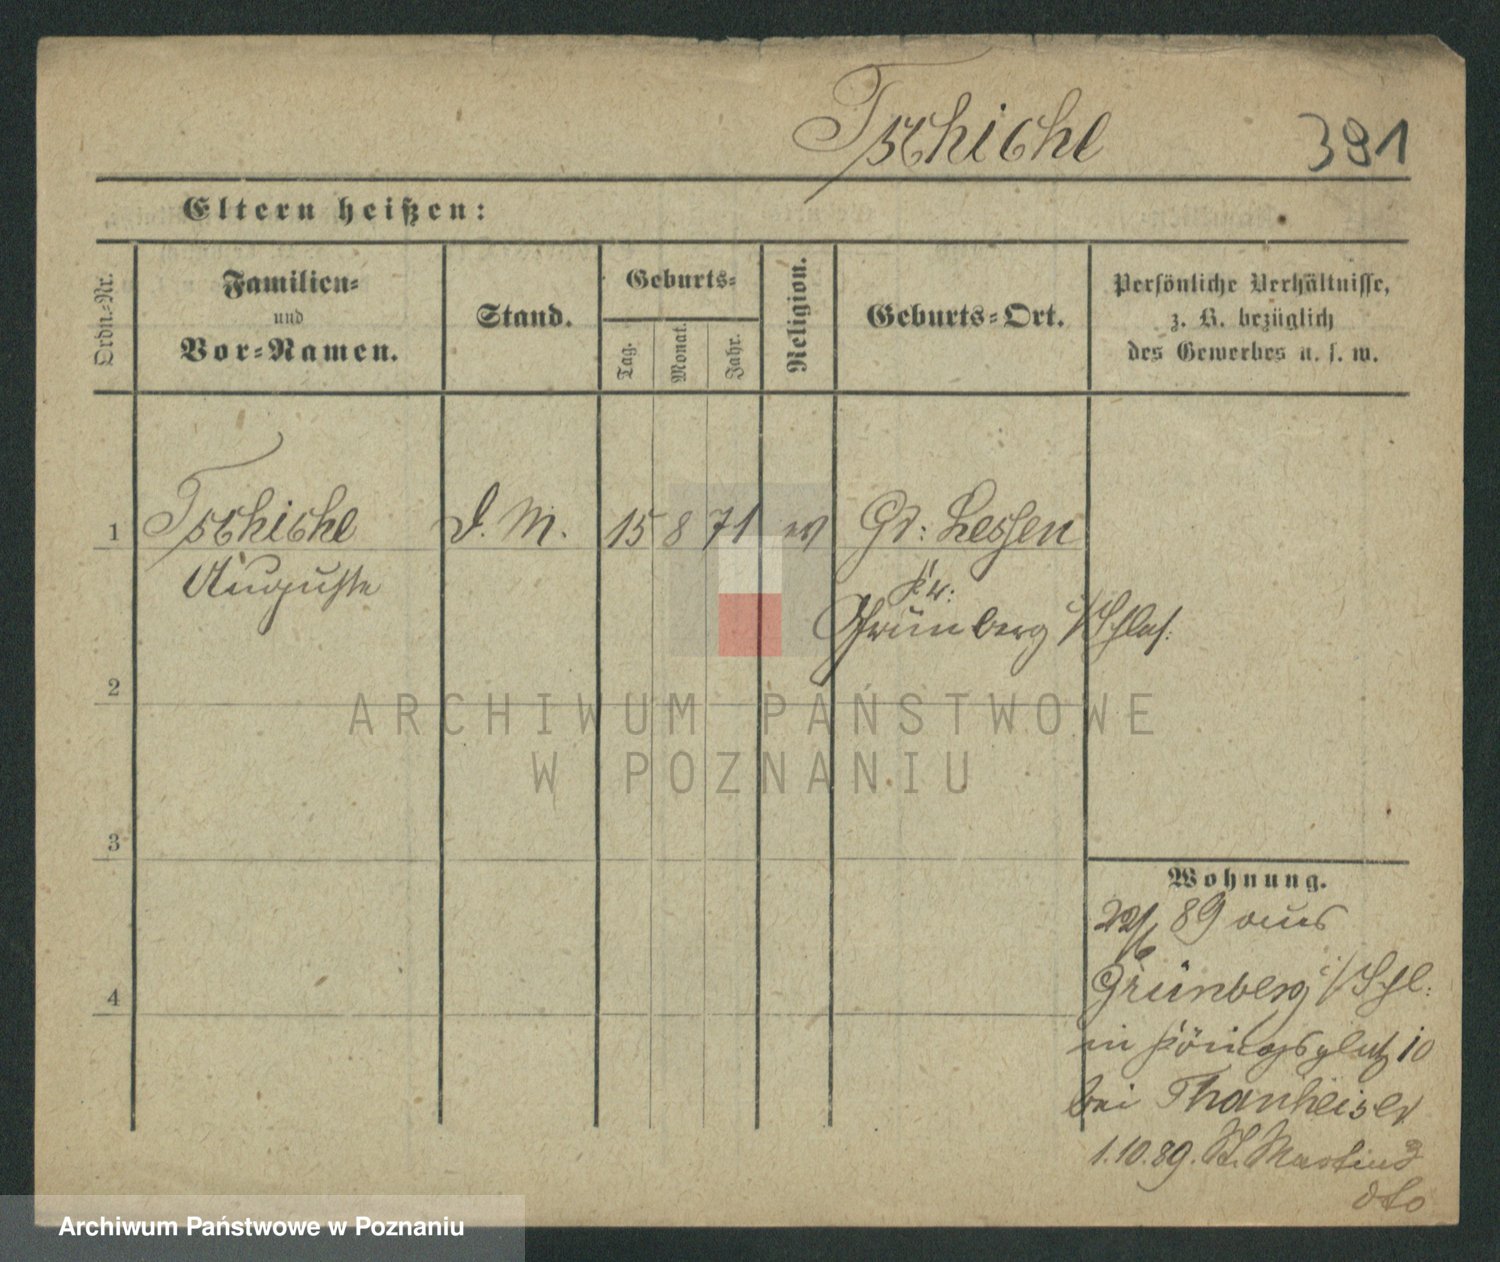 Tschiche 391
Eltern heißen:
Ordn.-Nr.
Familien-
und
Vor-Namen.
Stand.
Geburts-
Tag.
Monat.
Jahr.
Religion.
Geburts-Ort.
Persönliche Verhältnisse,
z. B. bezüglich
des Gewerbes u. s. w.
1 Tschiche D. M. 15 8 71 ev Gr: Lessen
Auguste Kr:
Grünberg i/Schles:
2
3
4
ARCHIWUM PAŃSTWOWE
W POZNANIU
Wohnung.
22/6 89 aus
Grünberg i/Schl:
in Königsplatz 10
bei Thanheiser
1.10.89. St. Martin
dto
Archiwum Państwowe w Poznaniu